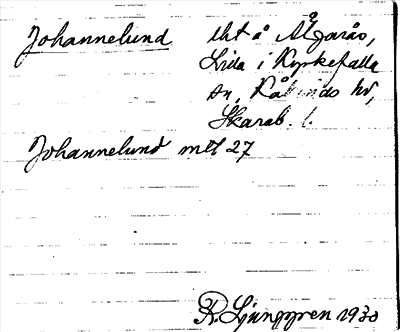 Johannelund lht å Älgarås,
Lilla i Kyrkefalla
sn, Kåkinds hd,
Skarab. l.
Johannelund mtl 27
R. Ljunggren 1930